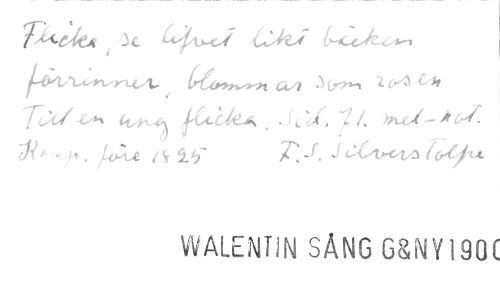 Flicka, se lifvet likt bäcken
förrinner, blommar som rosen
Till en ung flicka. Sid. 71. mel-not.
Komp. före 1825 F.S. Silverstolpe
WALENTIN SÅNG G&NY1900